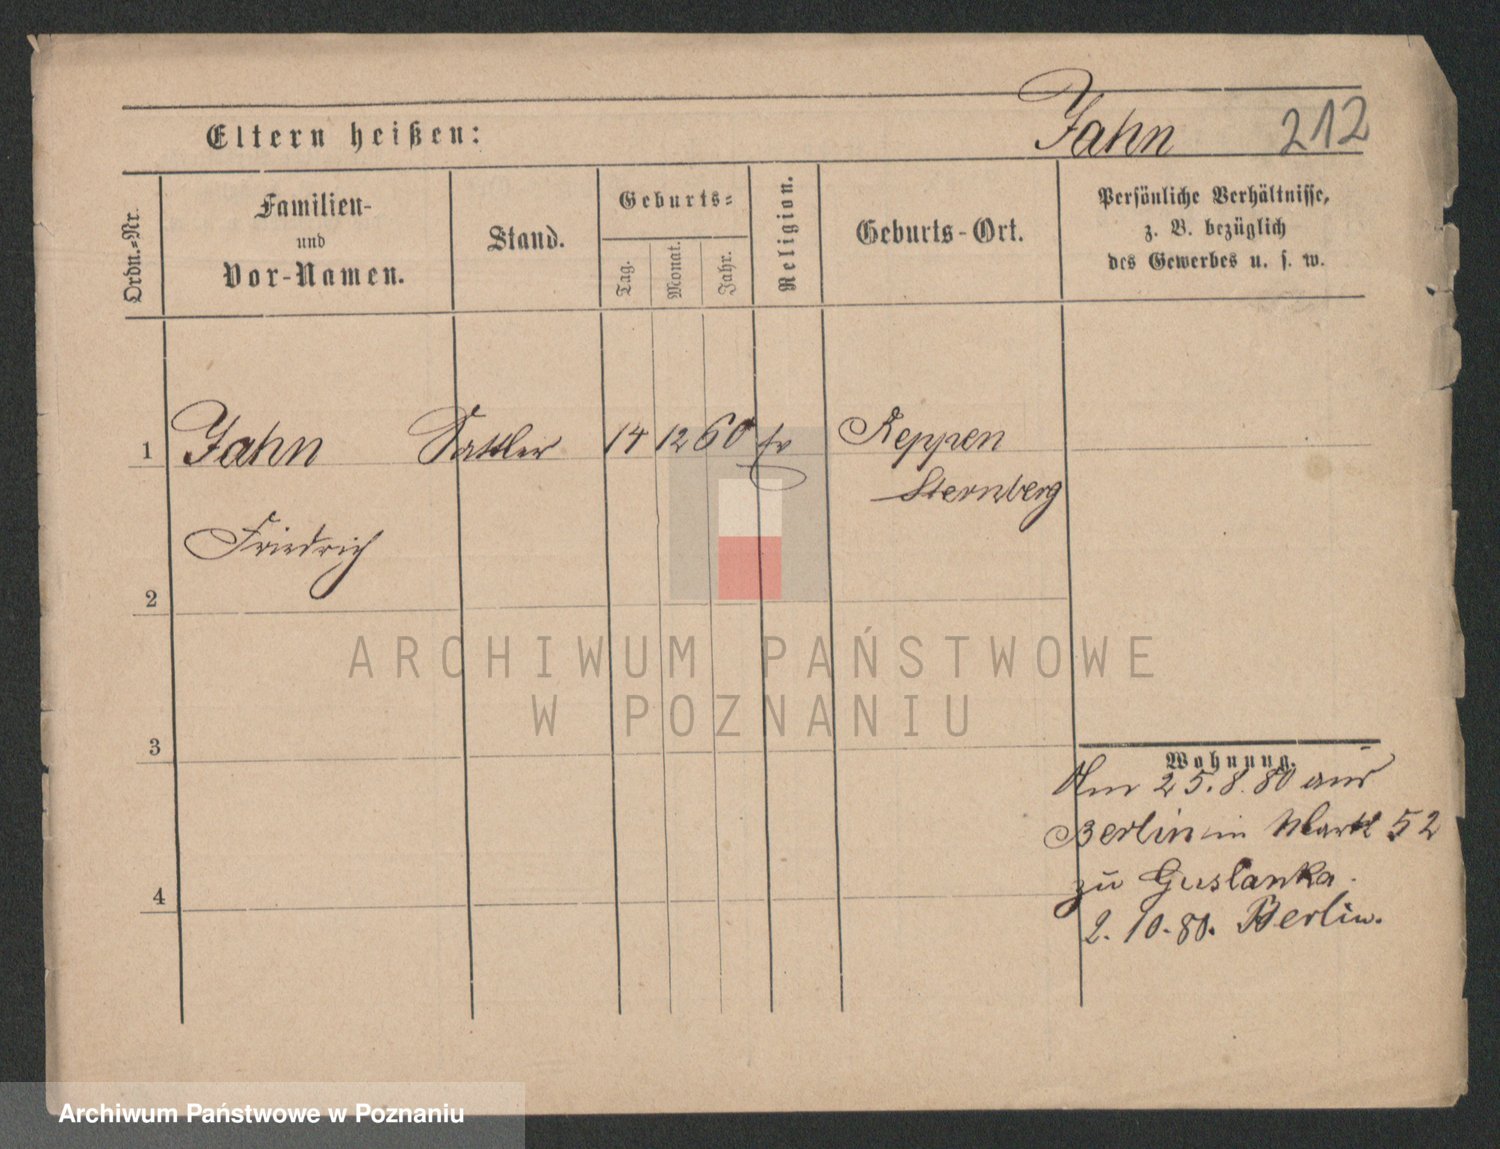 Eltern heißen:
Jahn 212
Ordn.=Nr.
Familien-
und
Vor-Namen.
Stand.
Geburts=
Tag.
Monat.
Jahr.
Religion.
Geburts-Ort.
Persönliche Verhältnisse,
z. B. bezüglich
des Gewerbes u. s. w.
1 Jahn Sattler 14 12 60 ev Reppen
Sternberg
Friedrich
2
ARCHIWUM PAŃSTWOWE
W POZNANIU
3
Wohnung.
Am 25.8.80 aus
Berlin im Markt 52
zu Guslanka.
4
2.10.80. Berlin.
Archiwum Państwowe w Poznaniu